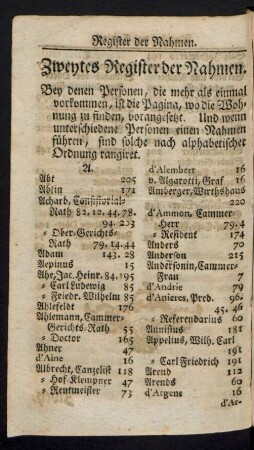 Register der Nahmen.
Zweytes Register der Nahmen.
Bey denen Personen, die mehr als einmal
vorkommen, ist die Pagina, wo die Woh-
nung zu finden, vorangesetzt. Und wenn
unterschiedene Personen einen Nahmen
führen, sind solche nach alphabetischer
Ordnung rangiret.
A.
Abt 205
Abtin 171
Achard, Consistorial-
Rath 82. 12. 44. 78.
94. 203
= Ober-Gerichts-
Rath 79. 14. 44
Adam 143. 28
Aepinus 15
Ahe, Jac. Heinr. 84. 195
= Carl Ludewig 85
= Friedr. Wilhelm 85
Ahlefeldt 176
Ahlemann, Cammer-
Gerichts-Rath 55
= Doctor 165
Ahner 47
d'Aine 16
Albrecht, Canzelist 118
= Hof-Klempner 47
= Rentmeister 73
d'Alembert 16
v. Algarotti, Graf 16
Amberger, Wirthshaus
220
d'Ammon, Cammer-
Herr 79. 4
= Resident 174
Anders 70
Anderson 215
Andersonin, Cammer-
Frau 7
d'Andrie 79
d'Anieres, Pred. 96.
45. 46
= Referendarius 60
Annisius 181
Appelius, Wilh. Carl
191
= Carl Friedrich 191
Arend 112
Arends 60
d'Argens 16
d'Ar-